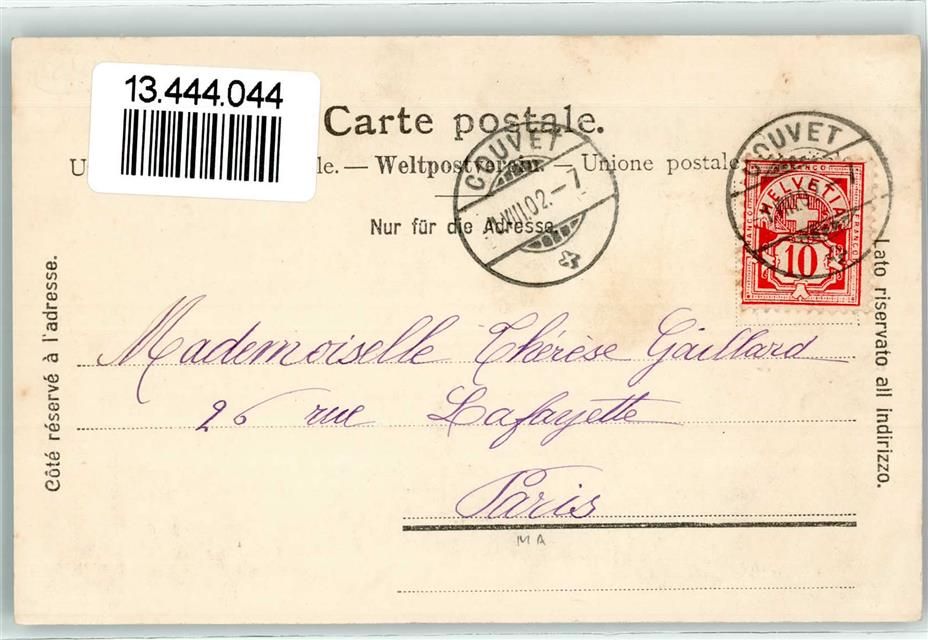 13.444.044
Carte postale.
le. — Weltpostverein. — Unione postale
Nur für die Adresse.
COUVET
VIII.02.–7
COUVET
FRANCO
HELVETIA
10
Côté réservé à l'adresse.
Lato riservato all indirizzo.
Mademoiselle Thérèse Gaillard
26 rue Lafayette
Paris
MA